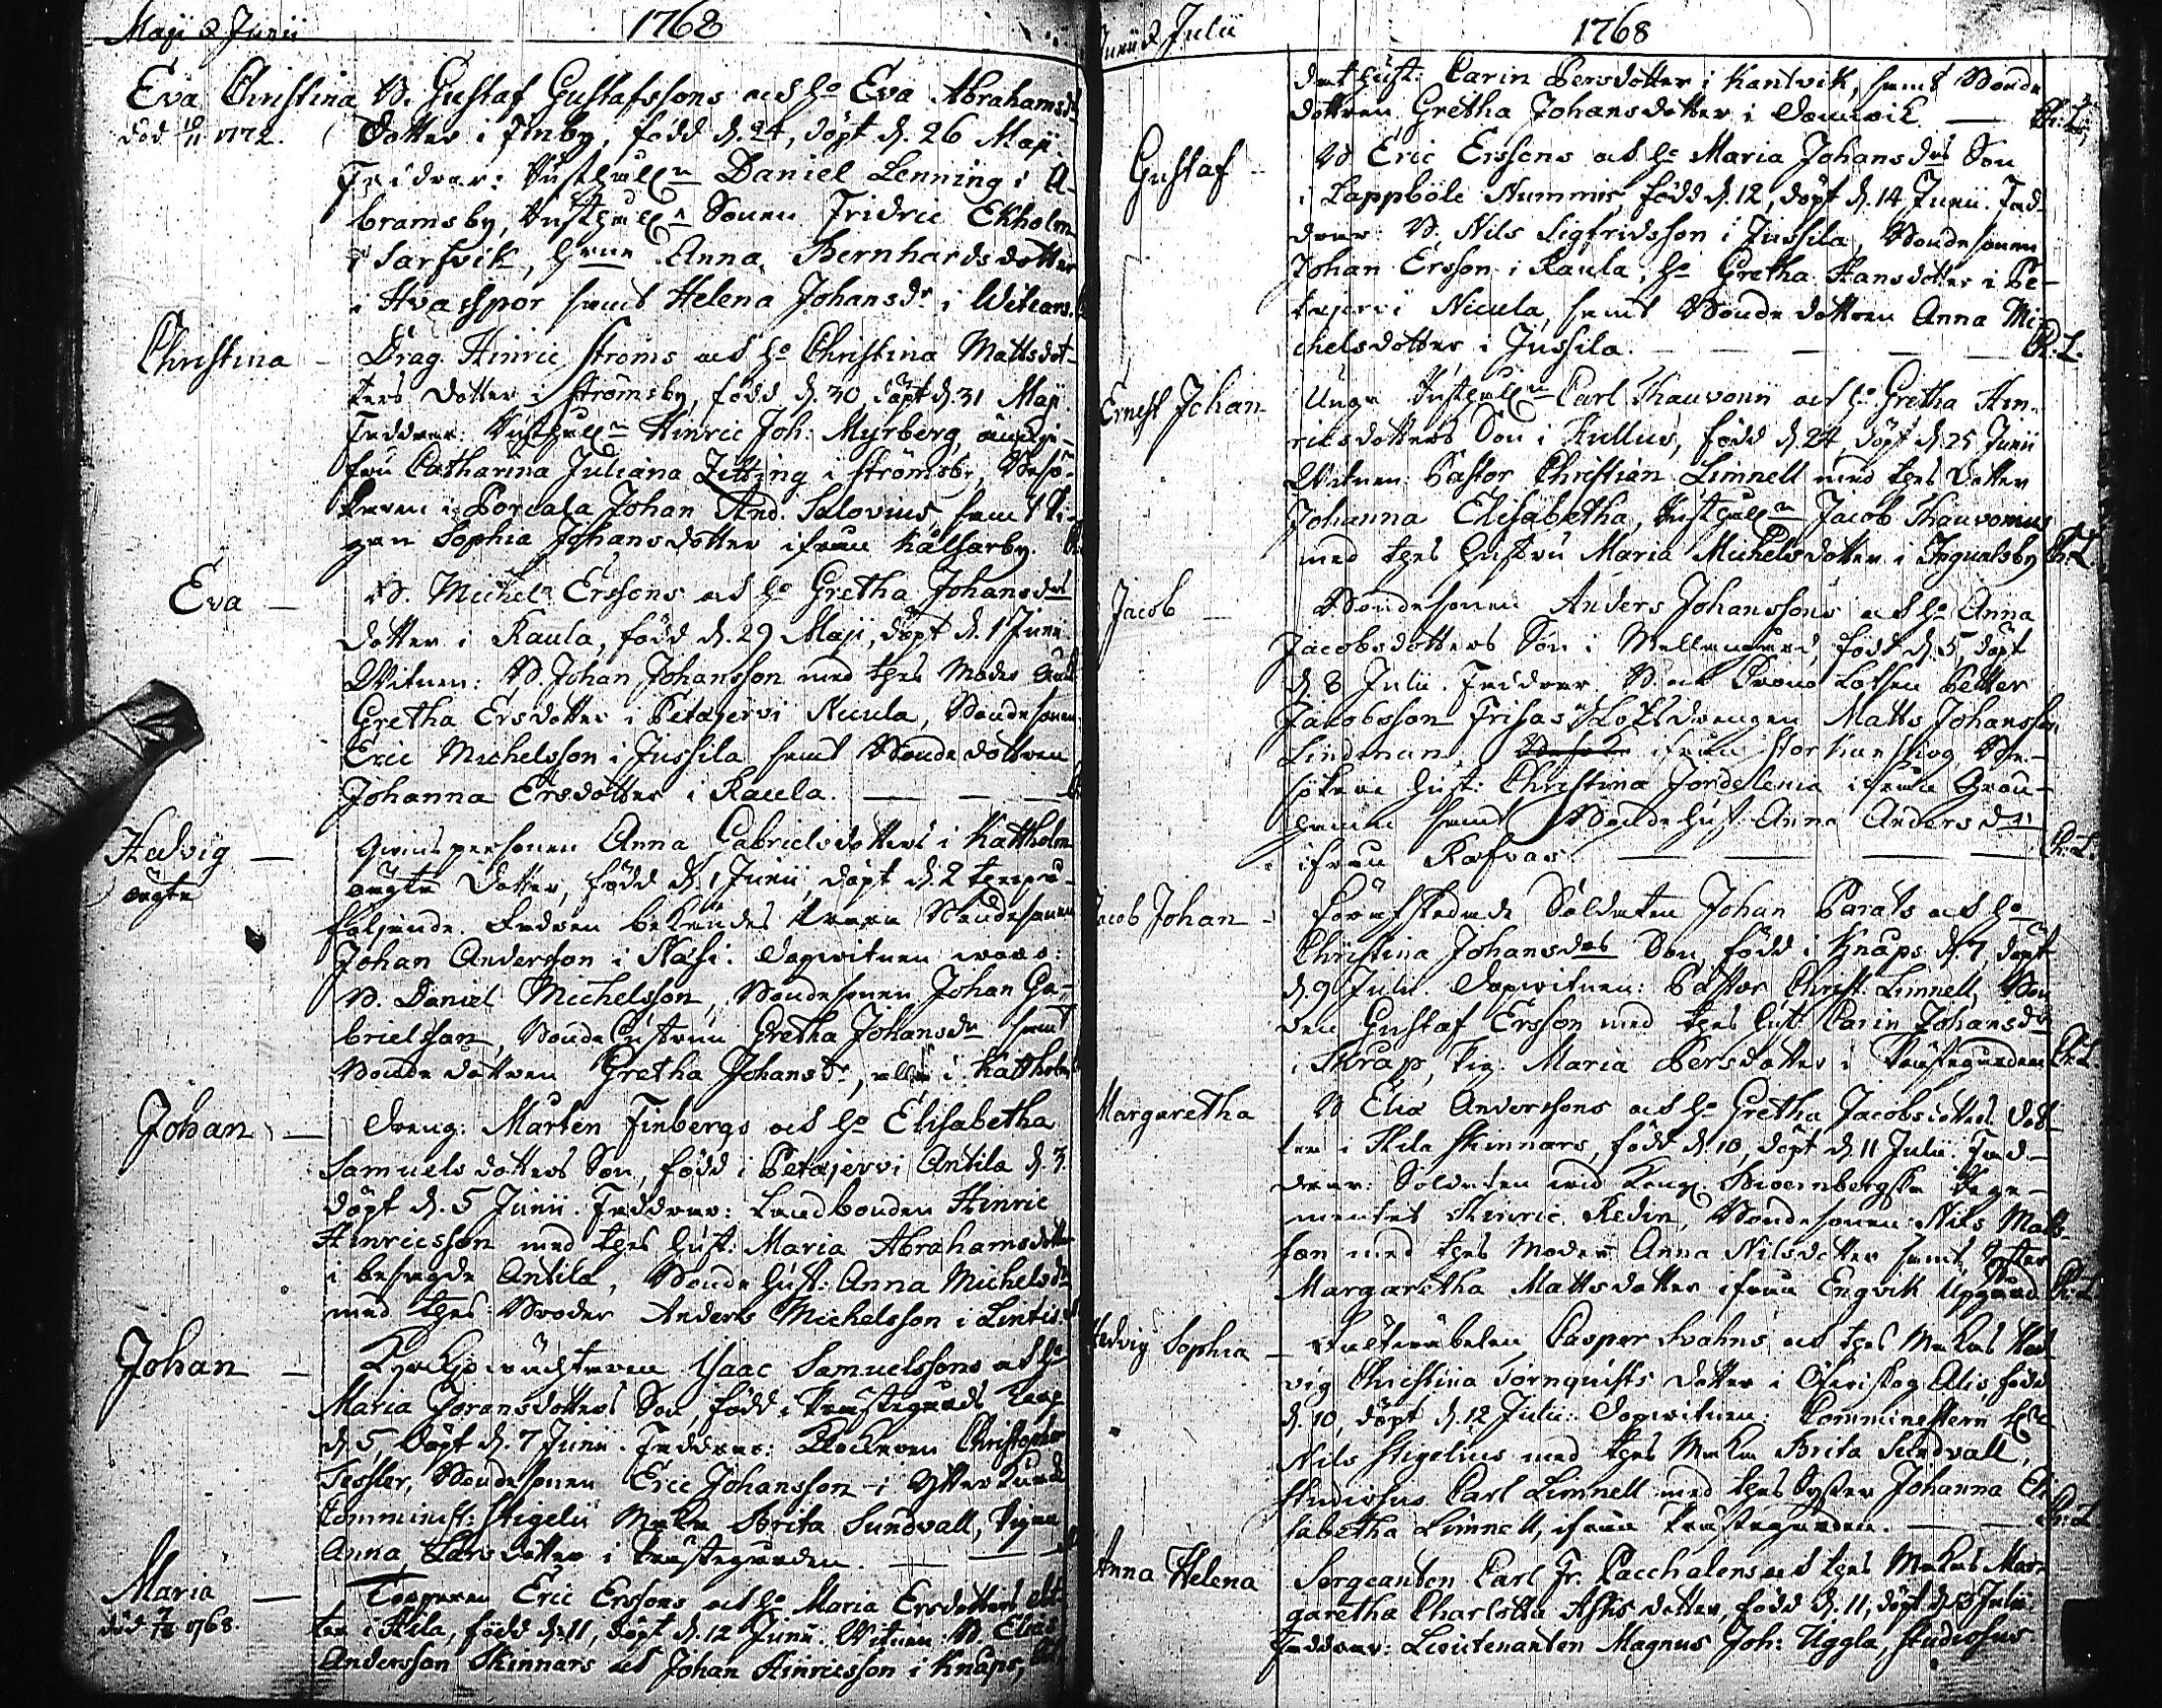 Maji & Junii 1768
Eva Christina B. Gustaf Gustafssons och ho Eva Abrahamsd:
död 10/11 1772. Dotter i Finby, född d. 24, döpt d. 26 Maji.
Faddrar: Rusthåll:n Daniel Lenning i A-
bramsby, Rusthåll:n Sonen Fridric Ekholm
i Sarfvik, Anna Bernhardsdotter
i samt Helena Johansd:r i
Christina - Drag. Hinric Ströms och ho Christina Mattsdot-
ters dotter i Strömsby, född d. 30, döpt d. 31 Maji.
Faddrar: Rusthåll:n Hinric Joh: Myrberg,
fru Catharina Juliana Zitting i Strömsby,
i Porcala Johan And. Salovius, samt Pi-
gan Sophia Johansdotter ifrån Kälsarby.
Eva - B. Michel Erssons och ho Gretha Johansd:rs
dotter i Kaula, född d. 29 Maji, döpt d. 1 Junii.
Witnen: B. Johan Johansson med thes Moder
Gretha Ersdotter i Petäjervi Nicula, Bondesonen
Eric Michelsson i Jussila samt Bondedottren
Johanna Ersdotter i Kaula. - - -
Hedvig - Qvinspersonen Anna Gabrielsdotters i Kattholm
oägta oägta Dotter, född d. 1 Junii, döpt d. 2
följande. Fadren bekändes vara Bondesonen
Johan Andersson i Näsi. Dopwitnen woro:
B. Daniel Michelsson, Bondesonen Johan Ga-
brielsson, Bondehustrun Gretha Johansd:r samt
Bondedottren Gretha Johansd:r, alla i Kattholm
Johan - Dreng: Mårten Finbergs och ho Elisabetha
Samuelsdotters Son, född i Petäjervi Antila d. 3.
döpt d. 5 Junii. Faddrar: Landbonden Hinric
Hinricsson med thes hust: Maria Abrahamsdotter
i besagde Antila, Bonde hust: Anna Michelsd:r
med thes Broder Anders Michelsson i
Johan - Kyrkjowächtaren Isaac Samuelssons och ho
Maria Göransdotters Son, född i Prästegårds
d. 5, döpt d. 7 Junii. Faddrar: Klockaren Christopher
Tessler, Bondesonen Eric Johansson i
Comminist: Stigelii Maka Brita Sundvall, Pigan
Anna Larsdotter i Prästegården. - - -
Maria - Torparen Eric Erssons och ho Maria Ersdotters dot-
död 1768. ter i Kila, född d. 11, döpt d. 12 Junii. Witnen: B. Elias
Andersson Skinnars och Johan Hinricsson i Knaps,
Junii & Julii 1768
hust: Carin Persdotter i Kantvik, samt Bonde
dottren Gretha Johansdotter i Danwik - Ch: L:
Gustaf - B Eric Erssons och ho Maria Johansd:rs Son
i Lappböle Nummis, född d. 12, döpt d. 14 Junii. Fad-
drar: B. Nils Sigfridsson i Jussila, Bondesonen
Johan Ersson i Kaula, ho Gretha Hansdotter i Pe-
täjervi Nicula, samt Bondedottren Anna Mi-
chelsdotter i Jussila. - - - - Ch: L.
Ernest Johan Unge Rusthåll:n Carl Thauvonii och ho Gretha Hin-
ricsdotters Son i Kullus, född d. 24, döpt d. 25 Junii
Witnen: Pastor Christian Limnell med thes dotter
Johanna Elisabetha, Rusthåll:n Jacob Thauvonius
med thes hustru Maria Michelsdotter i Ch: L
Jacob - Bondesonen Anders Johanssons och ho Anna
Jacobsdotters Son i Mellangård, född d. 5, döpt
d. 8 Julii. Faddrar B. och Crono Lotsen Petter
Jacobsson Frisas Lotsdrengen Matts Johansson
Lindeman ifrån Storkanskog,
hust: Christina Jordelenia ifrån
samt Bondehust: Anna Andersd:r
ifrån Rafvas. - - - - Ch: L.
Jacob Johan - Förafskedade Soldaten Johan Parats och ho
Christina Johansd:rs Son, född i Knaps d. 7 döpt
d. 9 Julii. Dopwitnen: Pastor Christ: Limnell, Bon-
den Gustaf Ersson med thes hust: Carin Johansd:r
i Skrap, Pig. Maria Persdotter i Prästegården Ch: L.
Margaretha B Elia Anderssons och ho Gretha Jacobsdotters dot-
ter i Kila Skinnars, född d. 10, döpt d. 11 Julii. Fad-
drar: Soldaten wid Kong: Biörnbergske Rege-
mentet Hinric Redin, Bondesonen Nils Matts-
son med thes Moder Anna Nilsdotter samt Syster
Margaretha Mattsdotter ifrån Engvik Uppgård Ch: L.
Hedvig Sophia - Casper Svahns och thes Makas Hed-
vig Christina Törnquists dotter i Alis född
d. 10, döpt d. 12 Julii: Dopwitnen: Comministern H:r
Nils Stigelius med thes Maka Brita Sundvall,
Studiosus Carl Limnell med thes Syster Johanna Eli-
sabetha Limnell, ifrån Prästegården. - - Ch: L
Anna Helena Sergeanten Carl Fr. Pacchalens och thes Makas Mar-
garetha Charlotta Astis dotter, född d. 11, döpt d. 13 Julii.
Faddrar: Lieutenanten Magnus Joh: Uggla, Studiosus